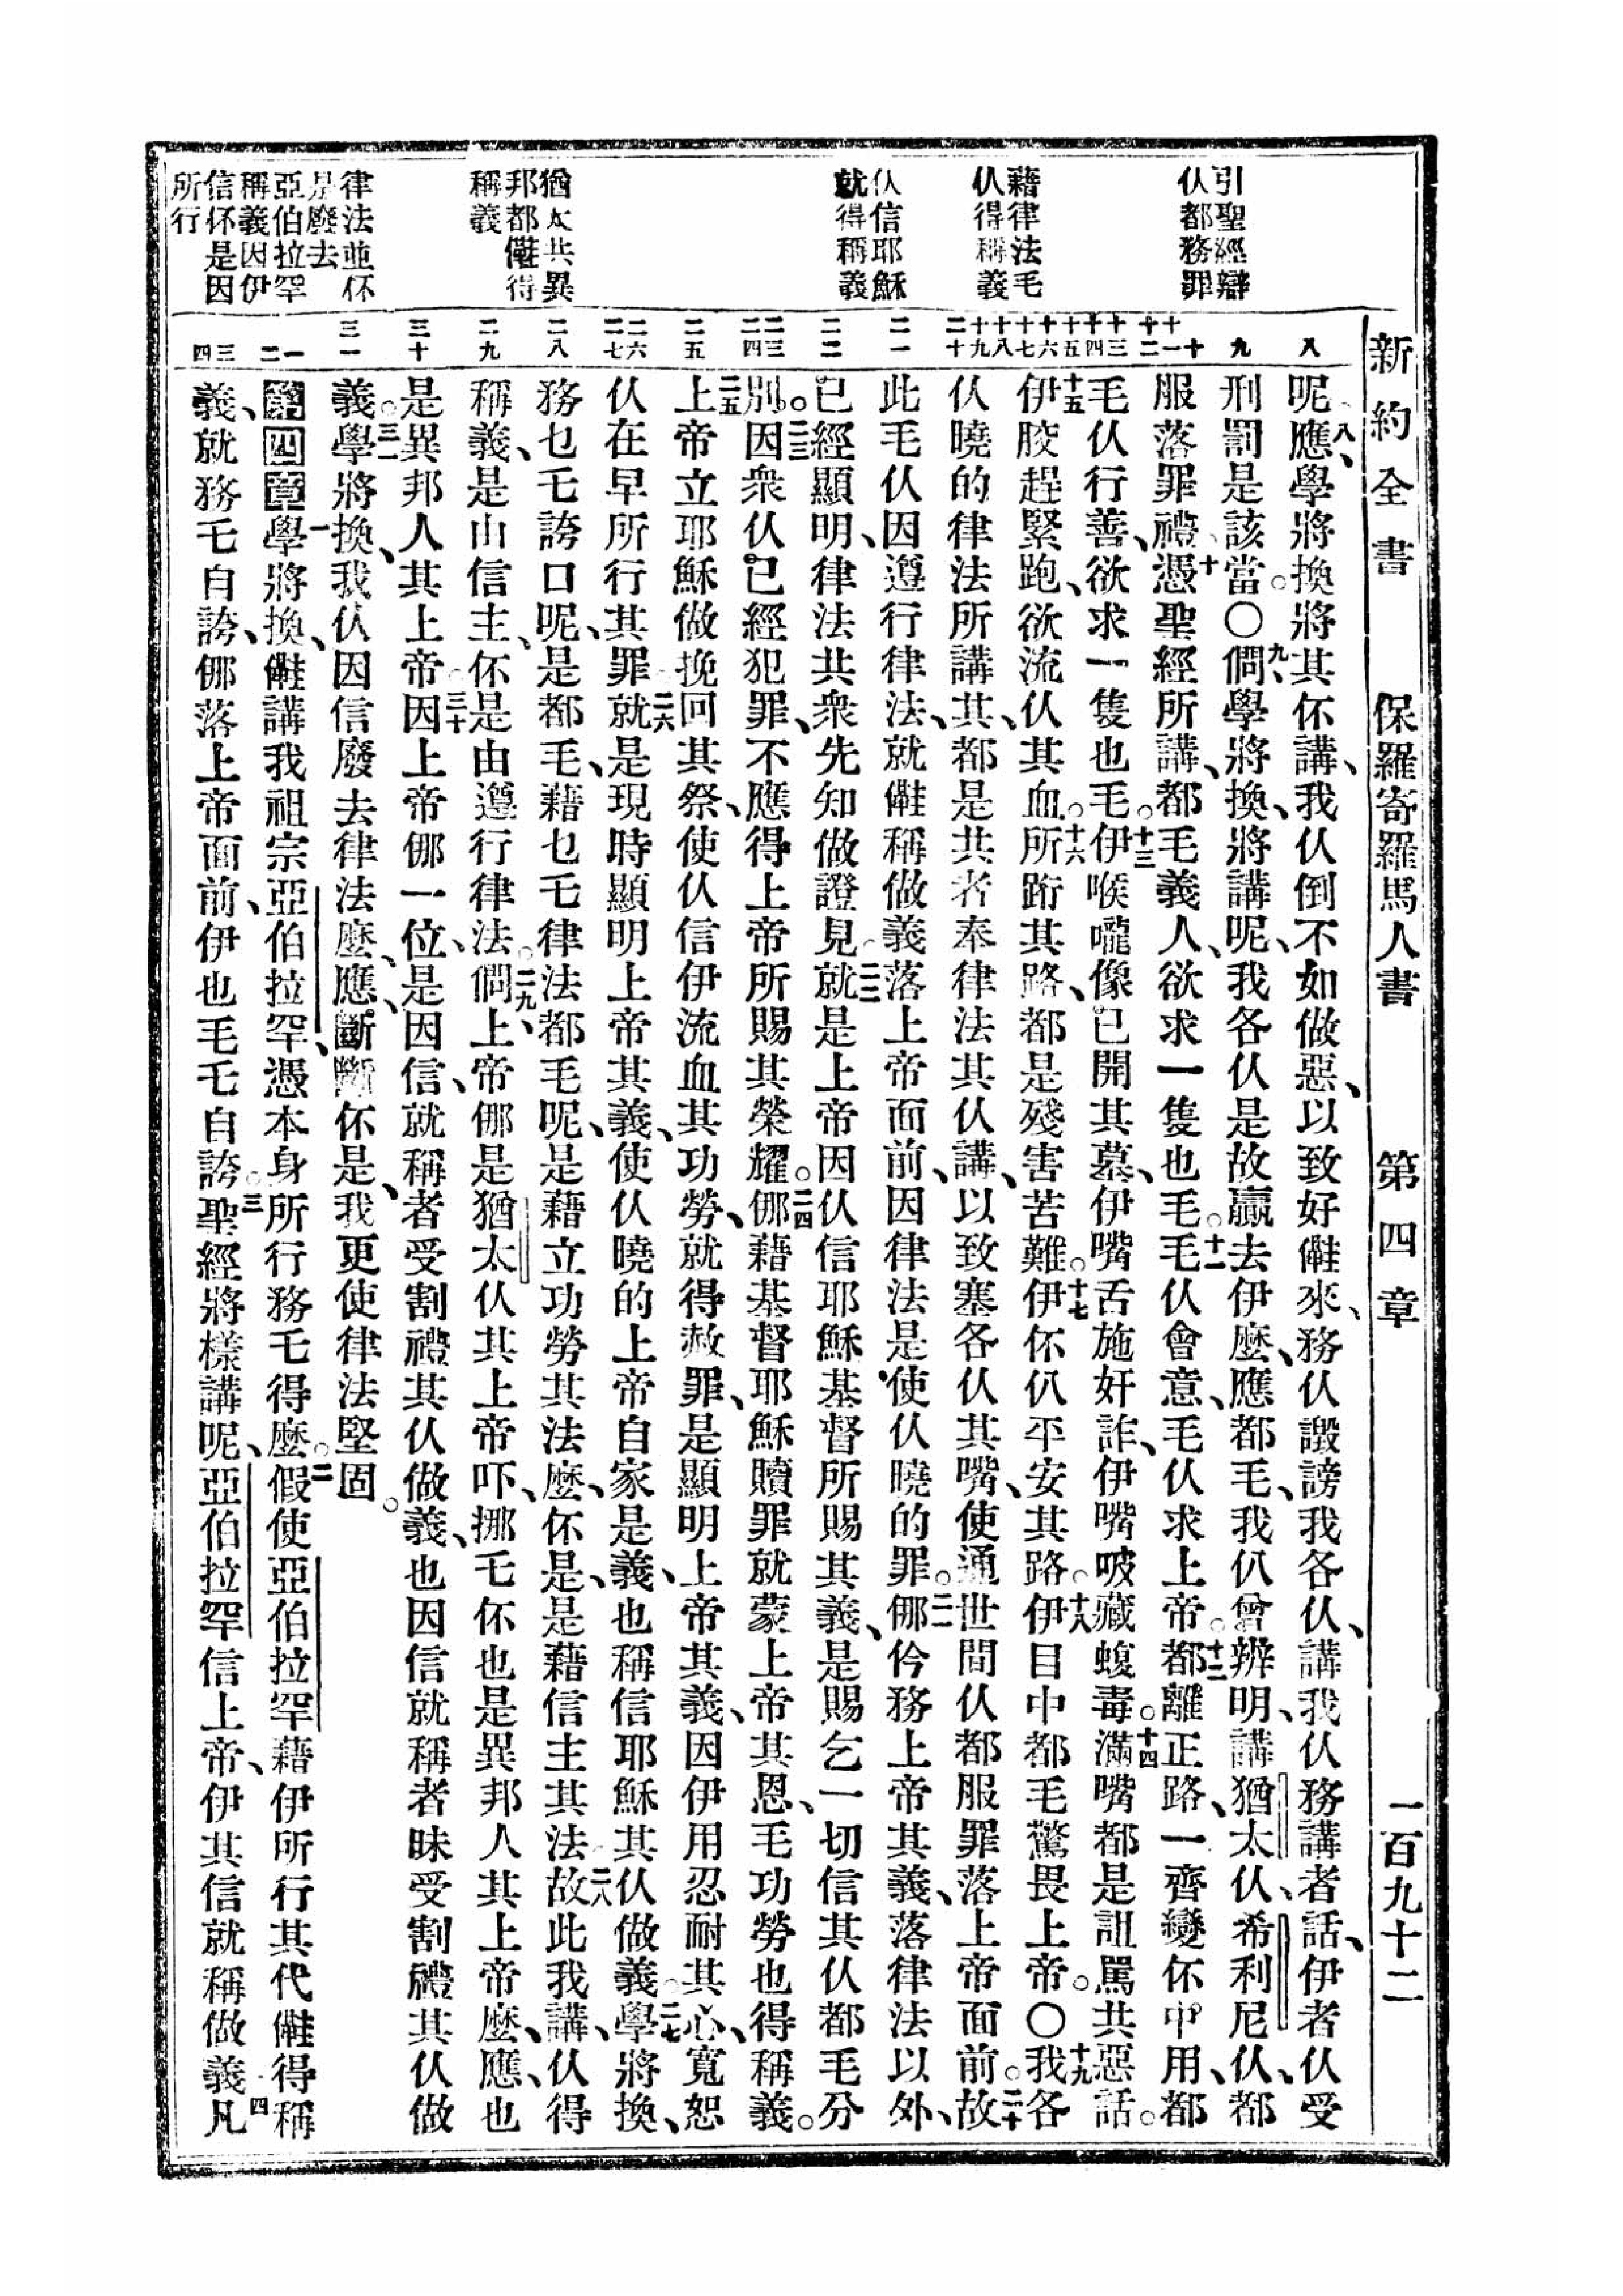 新約全書 保羅寄羅馬人書 第四章 一百九十二
引聖經辯
仏都務罪
藉律法毛
仏得稱義
仏信耶穌
就得稱義
猶太共異
邦都儺得
稱義
律法並伓
是廢去
亞伯拉罕
稱義因伊
信伓是因
所行
八 九 十 十一 十二 十三 十四 十五 十六 十七 十八 十九 二十 二一 二二 二三 二四 二五 二六 二七 二八 二九 三十 三一 一 二 三 四
呢、八應、學將換將其伓講、我仏倒不如做惡、以致好來、務仏譭謗我各仏、講我仏務講者話、伊者仏受
刑罰是該當。○九倜、學將換、將講呢、我各仏是故贏去伊麽、應都毛、我仈曾辨明、講猶太仏、希利尼仏、都
服落罪禮、十憑聖經所講、都毛義人、欲求一隻也毛。十一毛仏會意、毛仏求上帝。十二都離正路、一齊變伓中用、都
毛仏行善、欲求一隻也毛。十三伊喉嚨像已開其墓、伊嘴舌施奸詐、伊嘴㕹藏蝮毒。十四滿嘴都是詛罵共惡話。
十五伊骹趕緊跑、欲流仏其血。十六所跲其路、都是殘害苦難。十七伊伓仈平安其路。十八伊目中都毛驚畏上帝。○十九我各
仏曉的律法所講其、都是共者奉律法其仏講、以致塞各仏其嘴、使通世間仏都服罪落上帝面前。二十故
此毛仏因遵行律法、就稱做義落上帝面前、因律法是使仏曉的罪。二一㑚仱務上帝其義、落律法以外、
已經顯明、律法共衆先知做證見。二二就是上帝因仏信耶穌基督所賜其義、是賜乞一切信其仏都毛分
別。二三因衆仏已經犯罪、不應得上帝所賜其榮耀。二四㑚藉基督耶穌贖罪就蒙上帝其恩、毛功勞也得稱義。
二五上帝立耶穌做挽回其祭、使仏信伊流血其功勞、就得赦罪、是顯明上帝其義、因伊用忍耐其心、寬恕
仏在早所行其罪。二六就是現時顯明上帝其義、使仏曉的上帝自家是義、也稱信耶穌其仏做義。二七學將換、
務乜乇誇口呢、是都毛、藉乜乇律法都毛呢、是藉立功勞其法麽、伓是、是藉信主其法。二八故此我講、仏得
稱義、是由信主、伓是由遵行律法。二九倜、上帝㑚是猶太仏其上帝吓、挪乇伓也是異邦人其上帝麽、應、也
是異邦人其上帝。三十因上帝㑚一位、是因信、就稱者受割禮其仏做義、也因信就稱者昧受割禮其仏做
義。三一學將換、我仏因信廢去律法麽、應、斷斷伓是、我更使律法堅固。
第四章一學將換、講我祖宗亞伯拉罕、憑本身所行務乇得麽。二假使亞伯拉罕藉伊所行其代得稱
義、就務乇自誇、㑚落上帝面前、伊也毛乇自誇。三聖經將樣講呢、亞伯拉罕信上帝、伊其信就稱做義。四凡